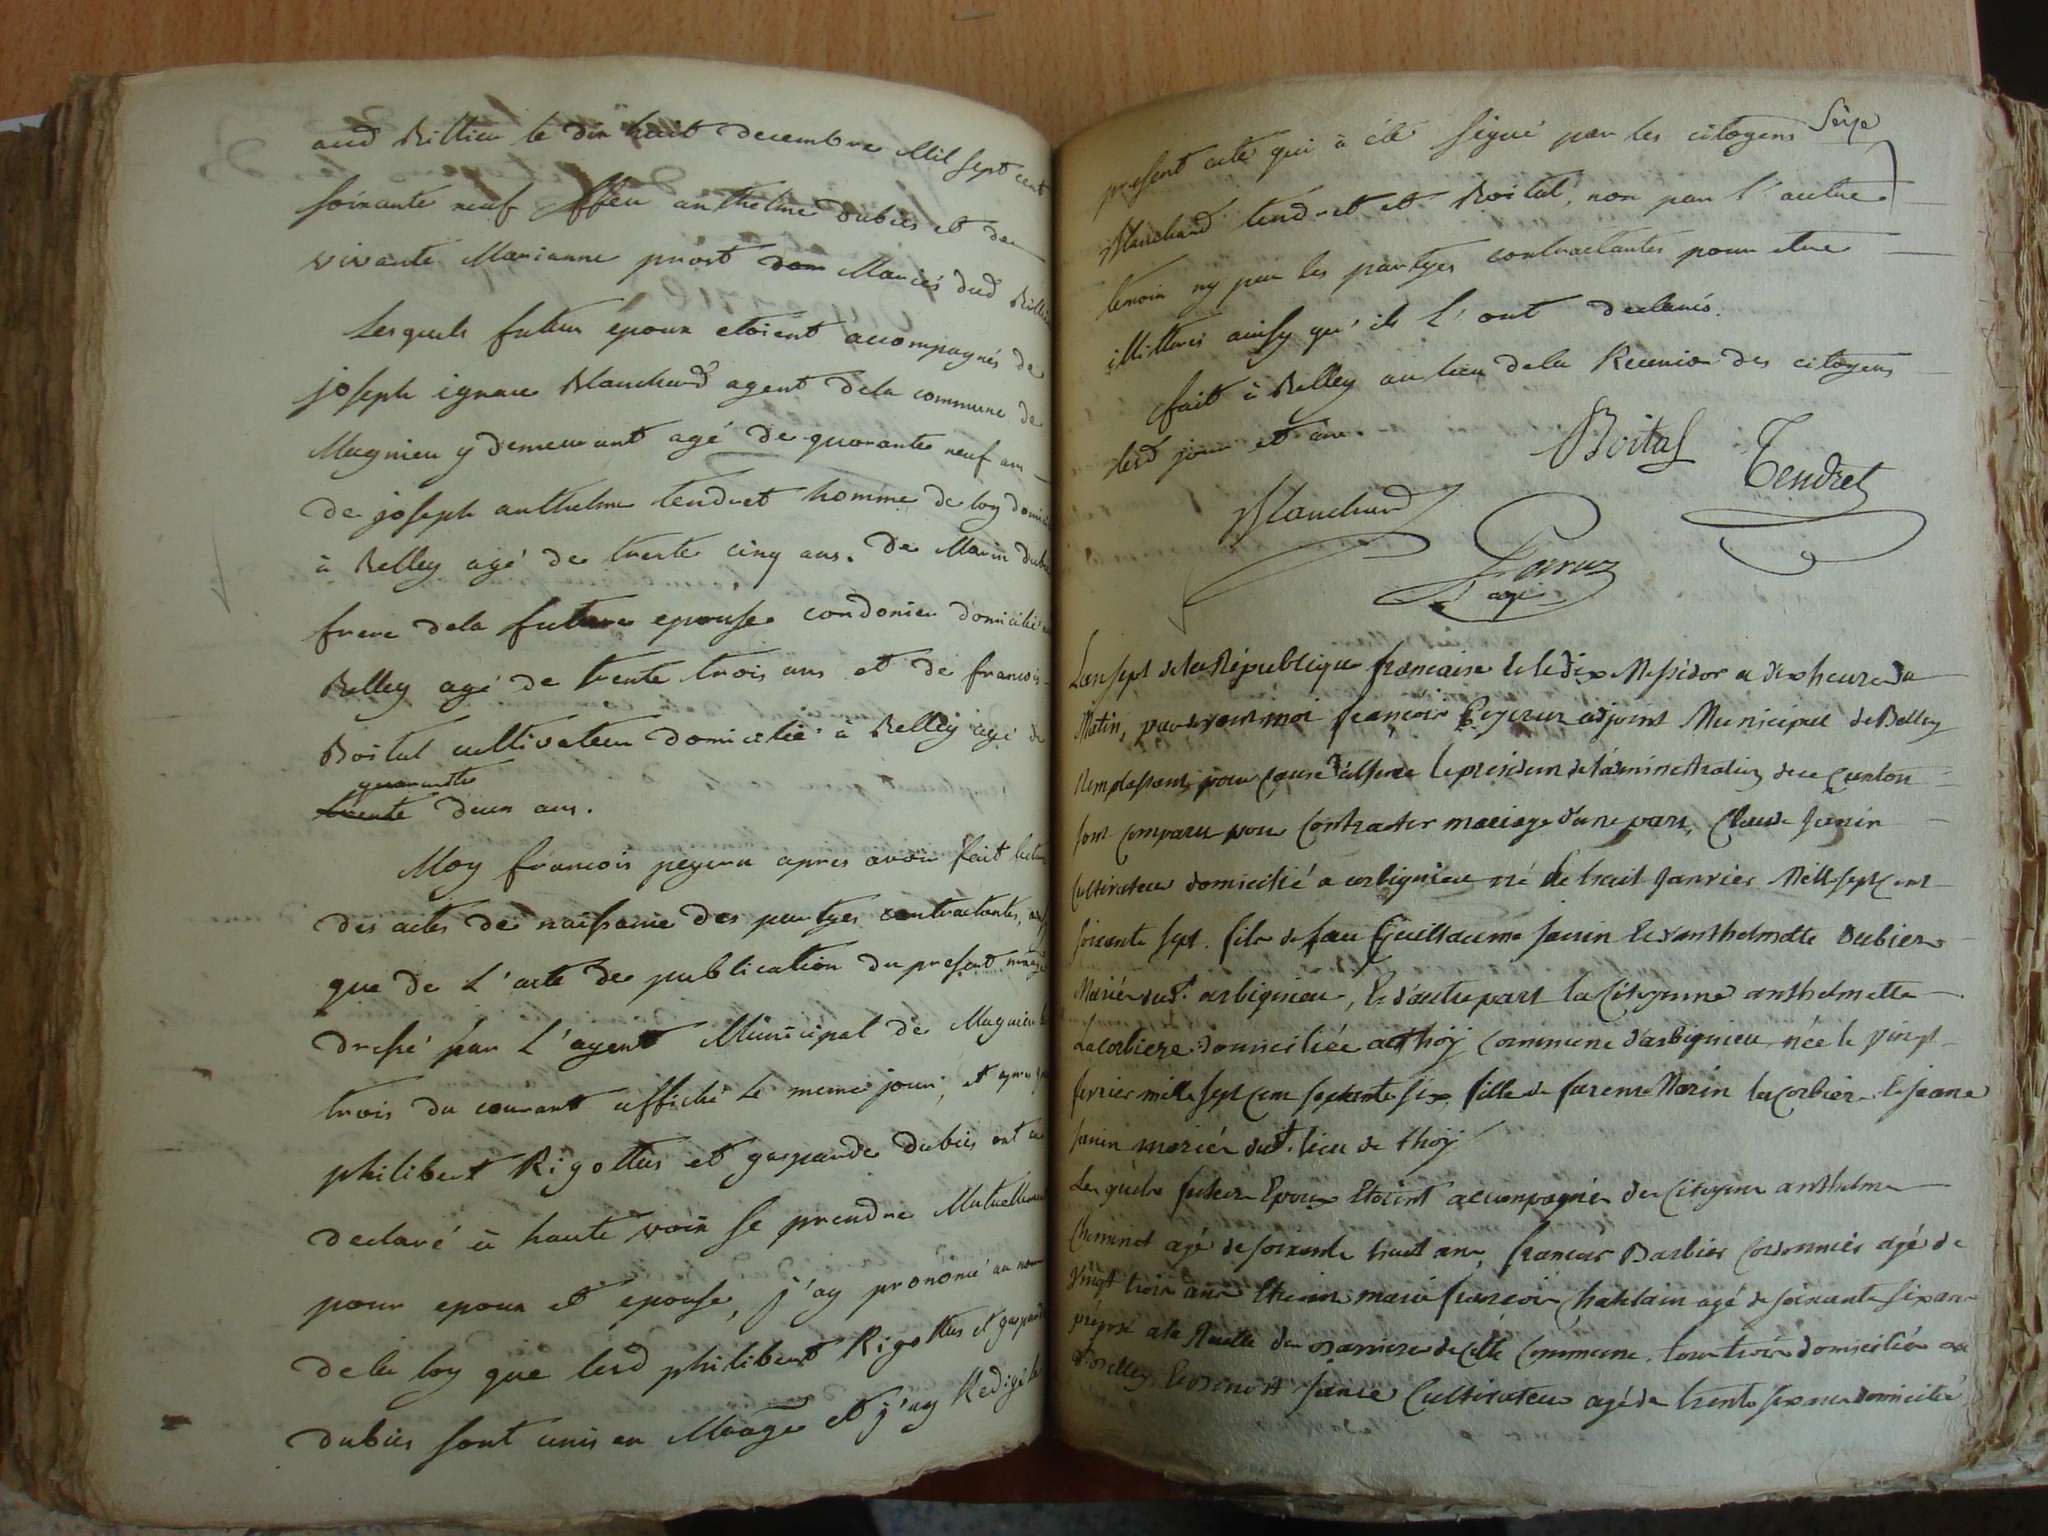 aud Billieu le dix huit decembre Mil sept cent
soixante neuf de feu anthelme dubies et de
vivante Marianne prost Mariés dud Billieu
Lesquels futurs époux etoient accompagnés de
joseph ignace Blanchard agent dela commune de
Magnieu y demeurant agé de quarante neuf ans
de joseph anthelme tendret homme de loy domicilié
à Belley agé de trente cinq ans. De Marin dubies
frere dela future epouse cordonier domicilié
Belley agé de trente trois ans et de francois
Boital cultivateur domicilié à Belley agé de
quarante
trente deux ans.
Moy francois peyzeu apres avoir fait lecture
des actes de naissance des partyes contractantes,
que de L'acte de publication du present mariage
dressé par L'agent Municipal de Magnieu le
trois du courant affiché Le meme jour, et apres que
philibert Rigottus et gasparde dubies ont eu
declaré à haute voix se prendre Mutuellement
pour epoux et epouse, j'ay prononcé au nom
dela loy que lesd philibert Rigottus et gasparde
dubies sont unis en Mariage et j'ay Redigé le
Seize
present acte qui à été signé par les citoyens
Blanchard tendret et Boital, non par l'autre
temoin ny par les partyes contractantes pour etre
illitterés ainsy qu'ils L'ont declarés.
fait à Belley au lieu dela Reunion des citoyens
lesd jour et an.
Boital
Tendret
Blanchard
agt
Lan sept de la République francaise le dix Messidor a dix heure du
Matin, par devant moi françois Peyzeux adjoint Municipal de Belley
Remplassant pour cause d'absence le president de l'aministration de ce Canton
sont comparu pour Contracter mariage d'une part, Claude Janin
Cultivateur domicilié a arbignieu né le huit Janvier Mill sept cent
soixante sept. fils de feu Guillaume Janin & d'anthelmette Dubier
Mariés dud. arbignieu, & d'autre part la Citoyenne anthelmette
Lacorbiere domiciliée a thoÿ Commune d'arbignieu, née le vingt
fevrier mille sept cent septante six, fille de Marin lacorbiere & jeane
Janin mariés dud. lieu de thoÿ
Les quels futurs Epoux Etoient accompagnés des Citoyens anthelme
Cheminet agé de soixante huit ans, francois Barbier Cordonnier agé de
vingt trois ans marie françois agé de soixante six ans
préposé a la Recette des Barrieres de cette Commune, tous trois domiciliés a
Belley, & Benoit Janin Cultivateur agé de trente six ans domicilié